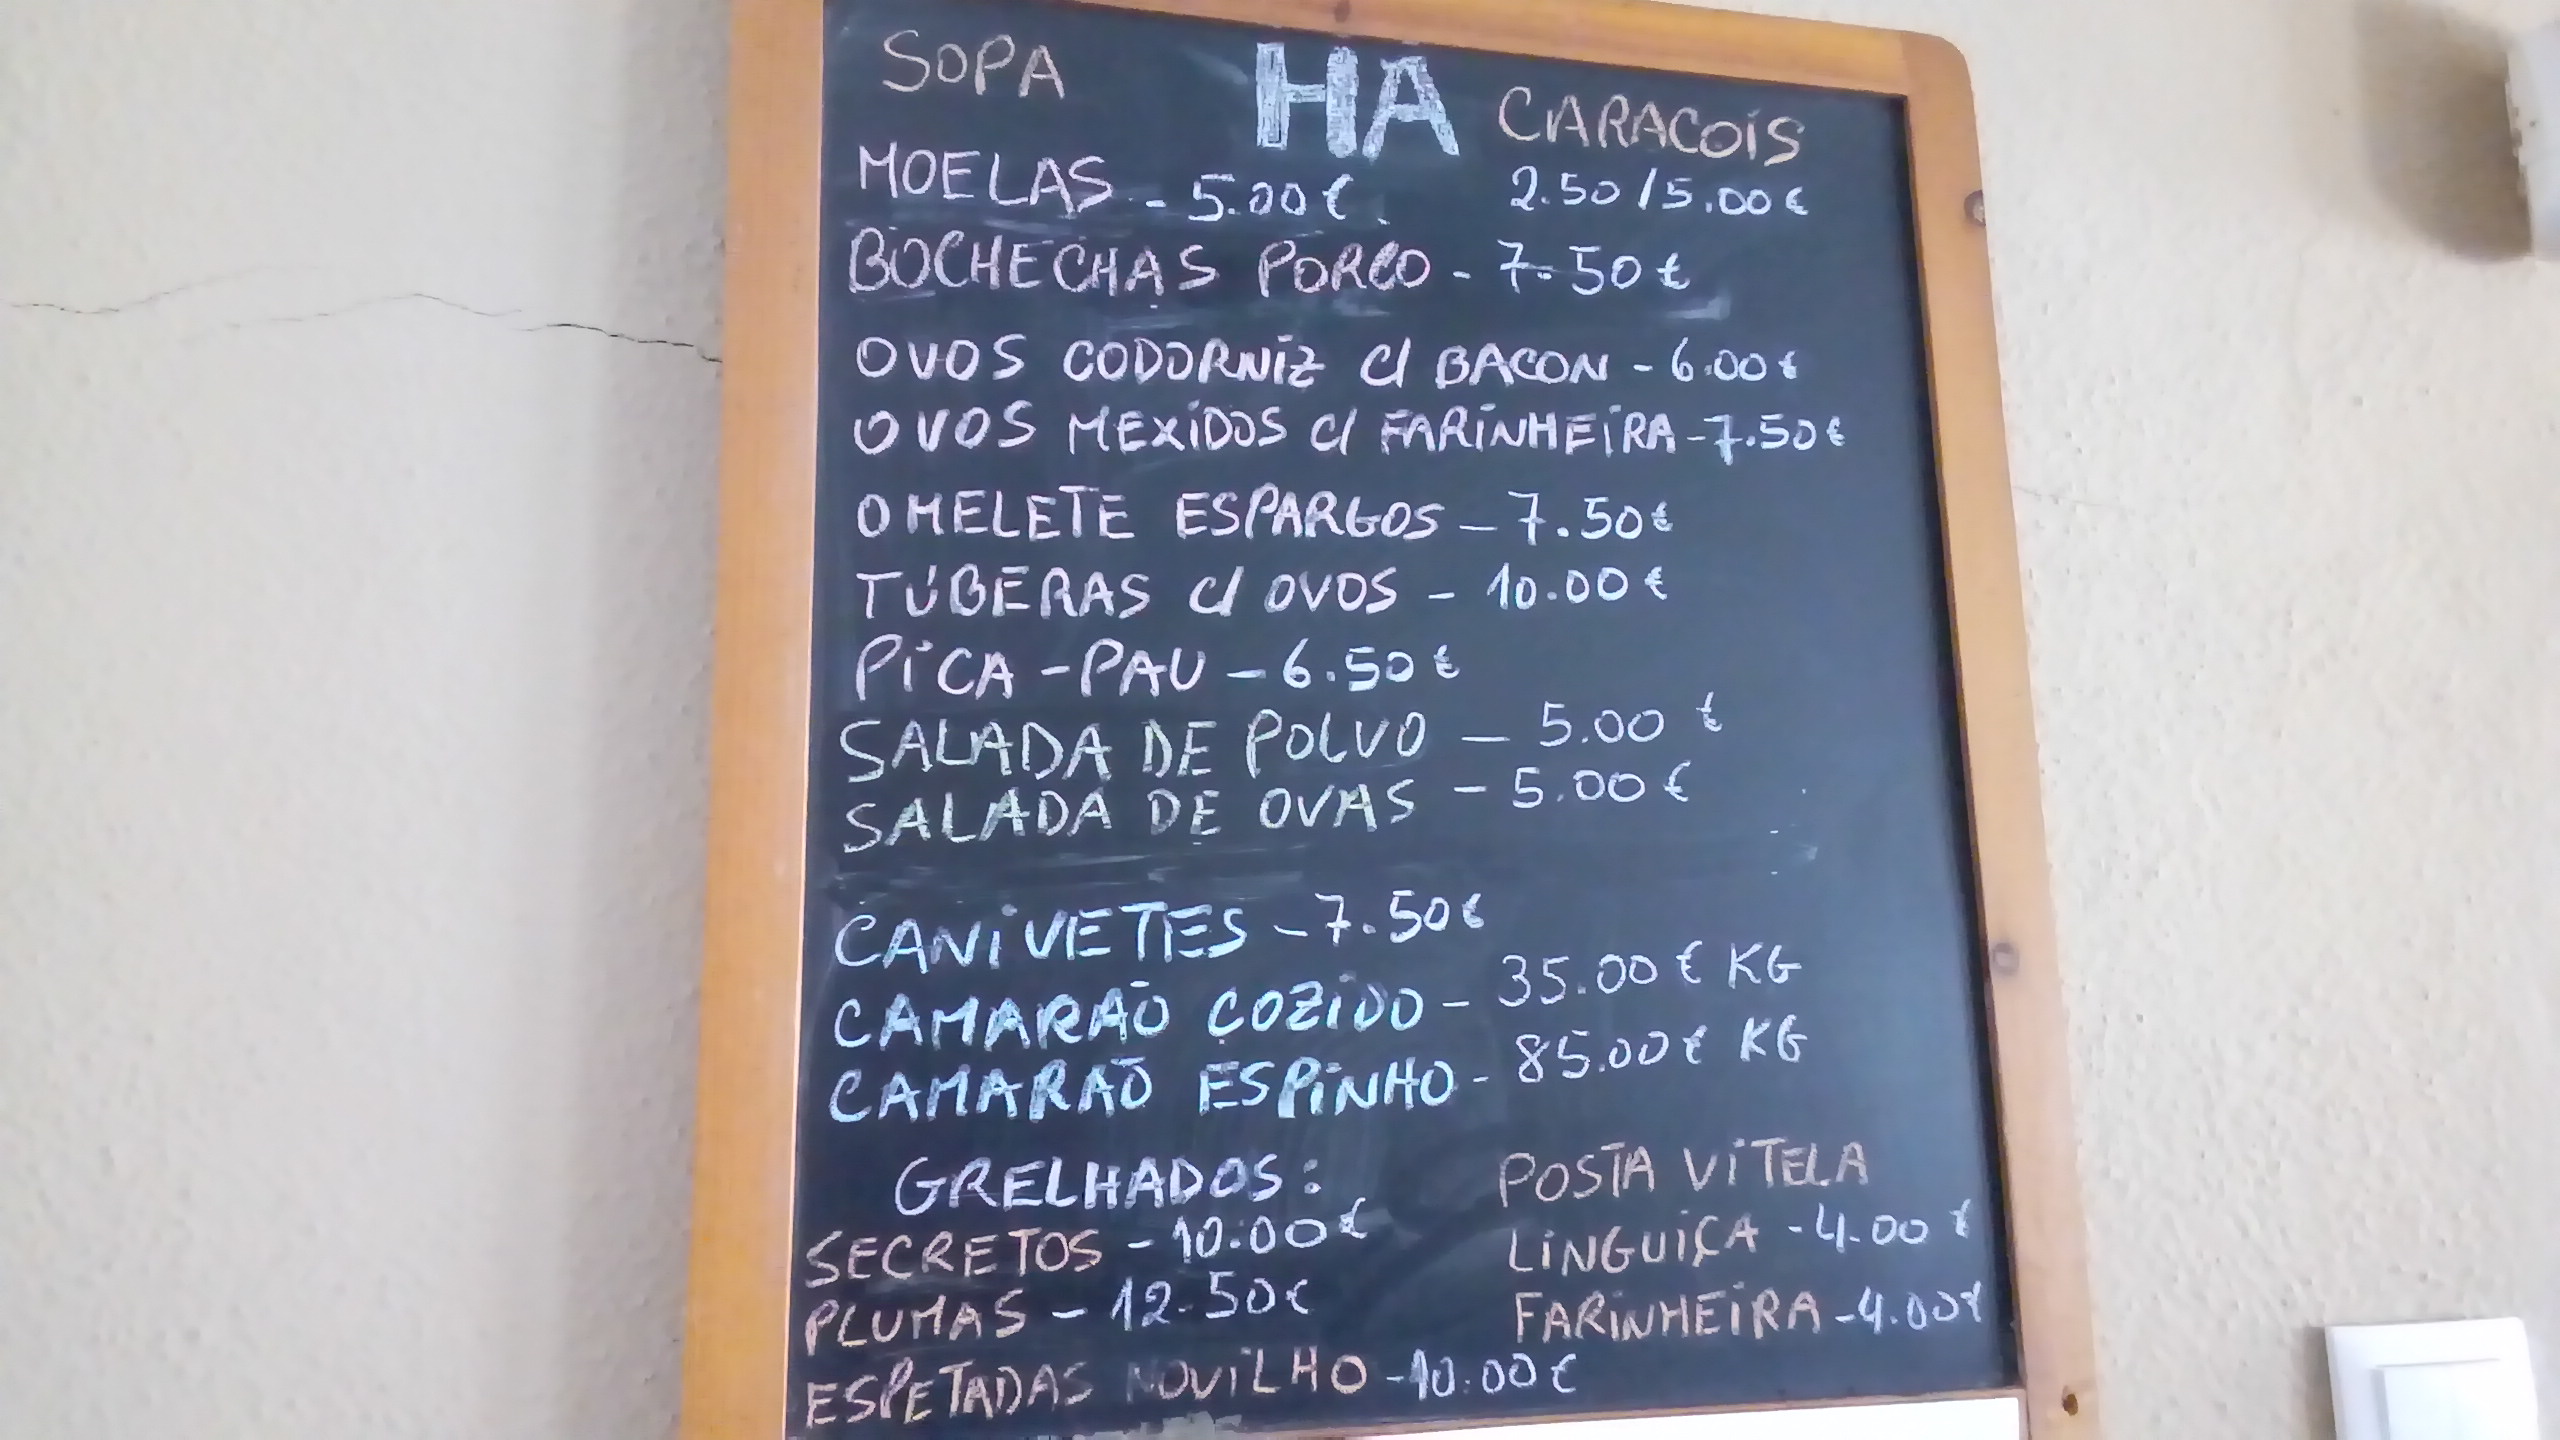 SOPA HÁ CARACOIS
MOELAS - 5.00€ 2.50/5.00€
BOCHECHAS PORCO - 7.50€
OVOS CODORNIZ C/ BACON - 6.00€
OVOS MEXIDOS C/ FARINHEIRA - 7.50€
OMELETE ESPARGOS - 7.50€
TÚBERAS C/ OVOS - 10.00€
PICA-PAU - 6.50€
SALADA DE POLVO - 5.00€
SALADA DE OVAS - 5.00€
CANIVETES - 7.50€
CAMARÃO COZIDO - 35.00€ KG
CAMARÃO ESPINHO - 85.00€ KG
GRELHADOS: POSTA VITELA
SECRETOS - 10.00€ LINGUIÇA - 4.00€
PLUMAS - 12.50€ FARINHEIRA - 4.00€
ESPETADAS NOVILHO - 10.00€